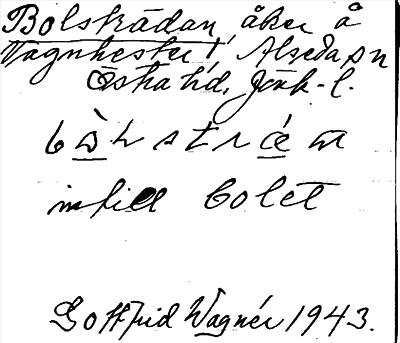 Bolsträdan, åker å
Vagnhester, Alseda sn
Östra hd, Jönk. l.
intill bolet
Gottfrid Wagnér 1943.